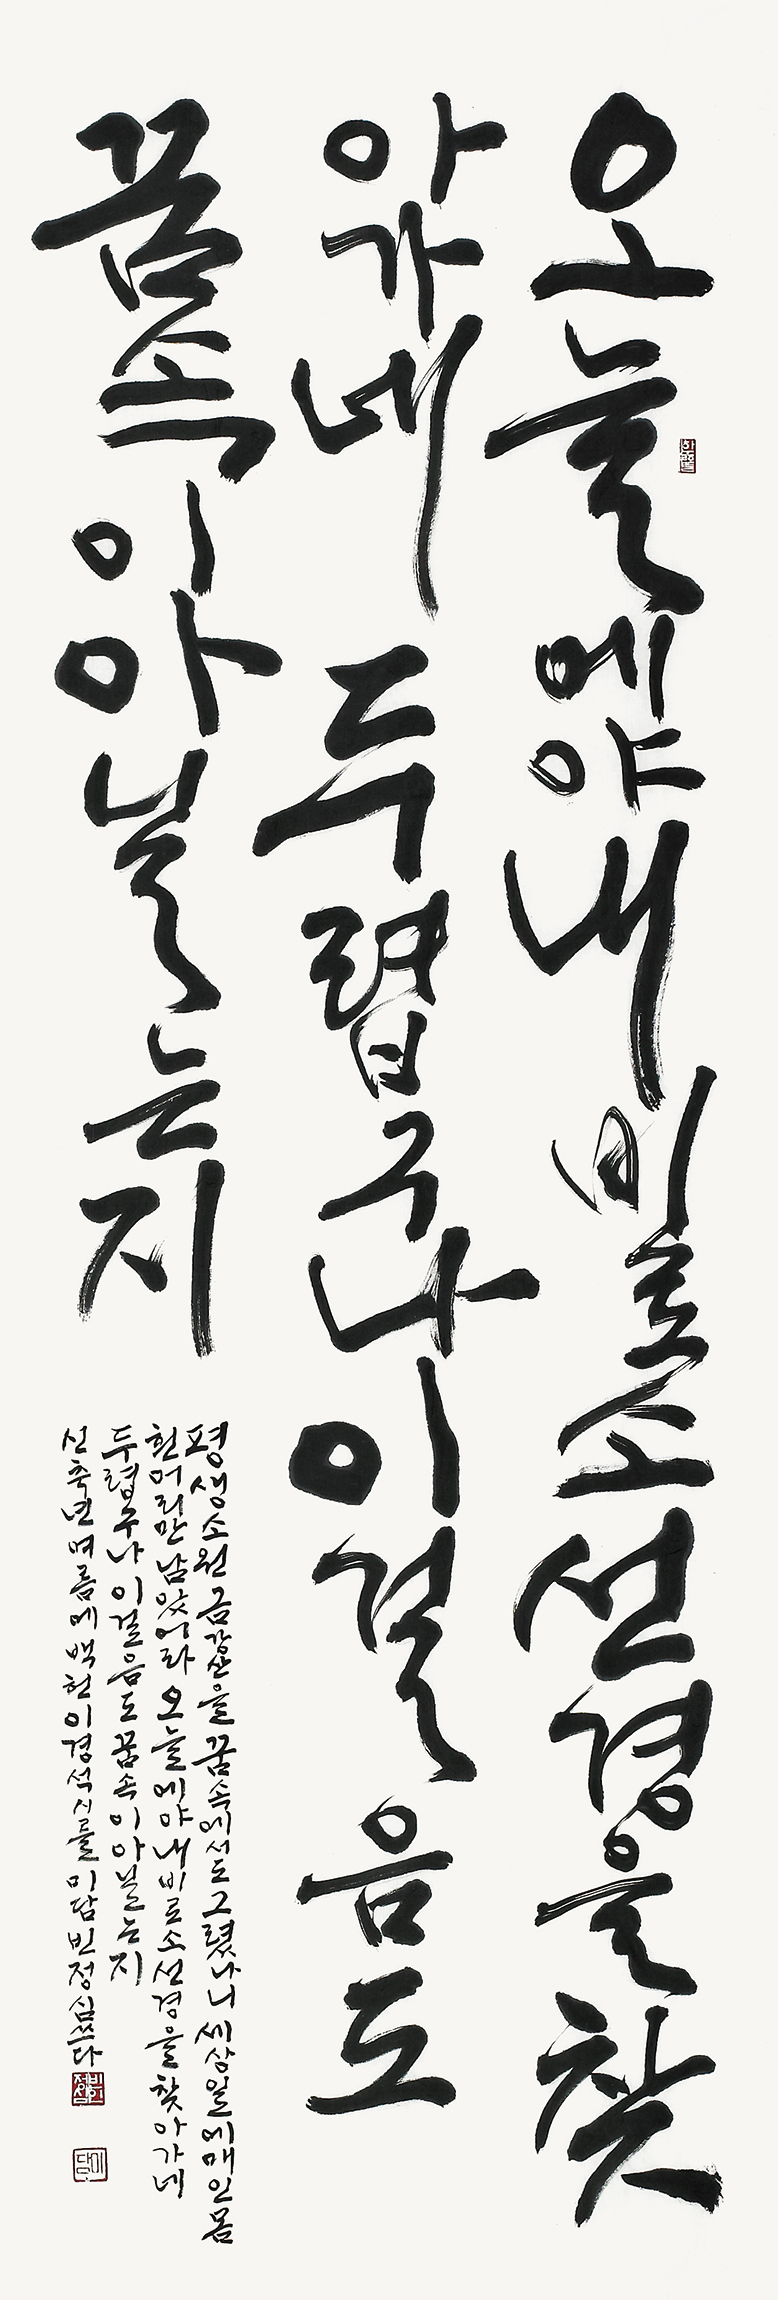 오늘에야 내 비로소 선경을 찾
아가네 두렵구나 이 걸음도
꿈속이 아닐는지
평생소원 금강산을 꿈속에서도 그렸나니 세상일에 매인 몸
흰머리만 남았어라 오늘에야 내 비로소 선경을 찾아가네
두렵구나 이 걸음도 꿈속이 아닐는지
신축년 여름에 백헌 이경석 시를 미담 빈정심 쓰다